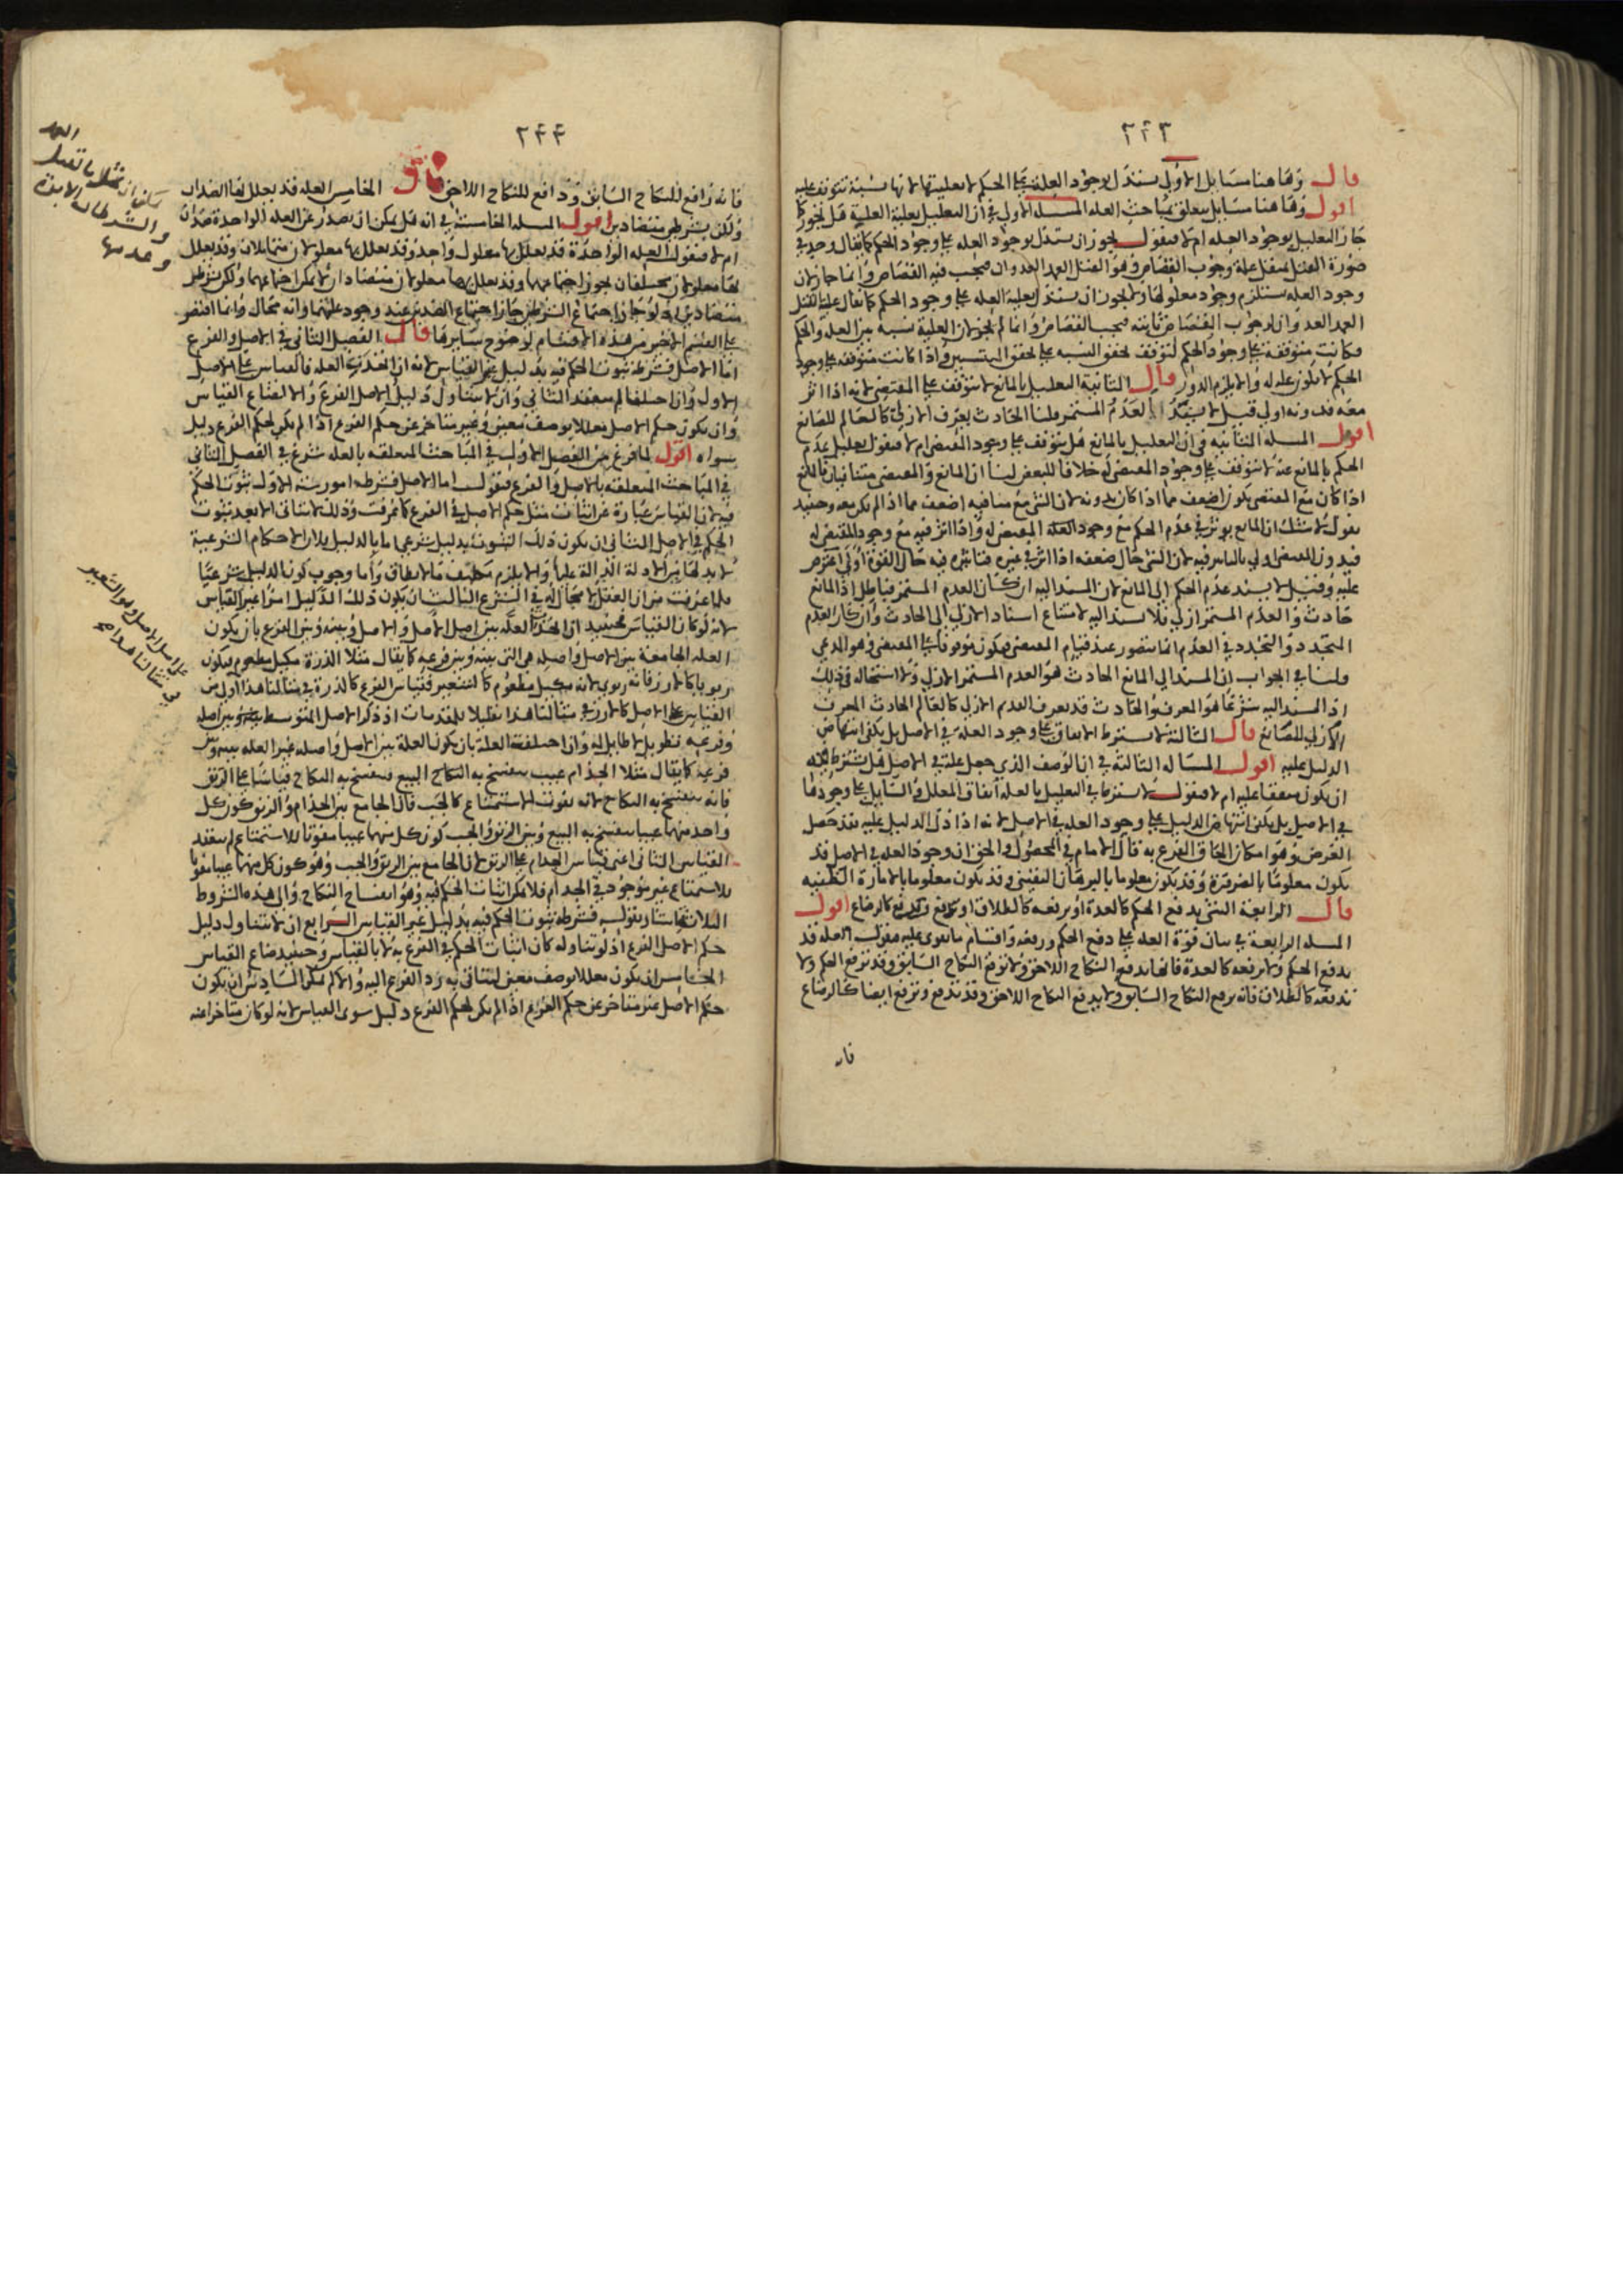 ٢٤٣
قال وهاهنا مسايل الاولى يستدل بوجود العلة على الحكم لا بعليتها لانها نسبة تتوقف عليه
اقول وهاهنا مسايل يتعلق بمباحث العله المسله الاولى في ان التعليل بعلية العلية هل يجوز كما
جاز التعليل بوجود العله ام لا فنقول يجوز ان يستدل بوجود العله على وجود الحكم كما يقال وجد في
صورة القتل بمثقل علة وجوب القصاص وهو القتل العمد العدوان فيجب فيه القصاص وانما جاز لان
وجود العله يستلزم وجود معلولها ولا يجوز ان يستدل بعلية العله على وجود الحكم كما يقال علية القتل
العمد العدوان لوجوب القصاص ثابته فيجب القصاص وانما لم يجز لان العلية نسبه بين العله والحكم
فكانت متوقفة على وجود الحكم لتوقف تحقق النسبه على تحقق المنتسبين واذا كانت متوقفه على وجود
الحكم لا تكون علة له والا يلزم الدور قال الثانية التعليل بالمانع لا يتوقف على المقتضى لانه اذا اثر
معه فدونه اولى قيل لا يستند العدم المستمر قلنا الحادث يعرف الازلي كالعالم للصانع
اقول المسله الثانيه في ان التعليل بالمانع هل يتوقف على وجود المقتضى ام لا فنقول تعليل عدم
الحكم بالمانع عندنا لا يتوقف على وجود المقتضى له خلافا للبعض لنا ان المانع والمقتضى متنافيان فالمانع
اذا كان مع المقتضى يكون اضعف مما اذا كان بدونه لان الشي مع منافيه اضعف مما اذا لم يكن معه وحينيذ
نقول لا شك ان المانع يوثر في عدم الحكم مع وجود العله المقتضى له واذا اثر فيه مع وجود المقتضى له
فبدون المقتضى اولى بالتاثير فيه لان الشي حال ضعفه اذا اثر في غيره فتاثيره فيه حال القوة اولى اعترض
عليه وقيل لا يسند عدم الحكم الى المانع لان المسند اليه ان كان العدم المستمر فباطل اذ المانع
حادث والعدم المستمر ازلي فلا يسند اليه لامتناع اسناد الازلي الى الحادث وان كان العدم
المتجدد والتجدد في العدم انما يتصور عند قيام المقتضى فيكون موقوفا على المقتضى وهو المدعى
قلنا في الجواب ان المسند الى المانع الحادث هو العدم المستمر الازلي ولا استحاله في ذلك
اذ المسند اليه شرعا هو المعرف والحادث قد يعرف العدم الازلي كالعالم الحادث المعرف
الازلي للصانع قال الثالثة لا يشترط الاتفاق على وجود العلة في الاصل بل يكفي انتهاض
الدليل عليه اقول المساله الثالثه في ان الوصف الذي جعل علة في الاصل هل يشترط فيه
ان يكون متفقا عليه ام لا فنقول لا يشترط في التعليل بالعله اتفاق المعلل والسايل على وجودها
في الاصل بل يكفي انتهاض الدليل على وجود العله في الاصل لانه اذا دل الدليل عليه فقد حصل
الغرض وهو امكان الحاق الفرع به قال الامام في المحصول والحق ان وجود العله في الاصل قد
يكون معلوما بالضرورة وقد يكون معلوما بالبرهان اليقيني وقد يكون معلوما بالامارة الظنيه
قال الرابعة الشي يدفع الحكم كالعدة او يرفعه كالطلاق او يدفع ويرفع كالرضاع اقول
المسله الرابعة في بيان قوة العله على دفع الحكم ورفعه واقسام ما تقوى عليه فنقول العله قد
يدفع الحكم ولا يرفعه كالعدة فانها يدفع النكاح اللاحق ولا ترفع النكاح السابق وقد ترفع الحكم ولا
تدفعه كالطلاق فانه يرفع النكاح السابق ولا يدفع النكاح اللاحق وقد تدفع وترفع ايضا كالرضاع
فانه
٢٤٤
فانه رافع للنكاح السابق ودافع للنكاح اللاحق قال الخامس العله قد يعلل بها الضدان
ولكن بشرطين متضادين اقول المسله الخامسة في انه هل يمكن ان يصدر عن العله الواحدة ضدان
ام لا فنقول العله الواحدة قد يعلل بها معلول واحد وقد يعلل بها معلولان متماثلان وقد يعلل
بها معلولان مختلفان يجوز اجتماعهما وقد يعلل بها معلولان متضادان لا يمكن اجتماعهما ولكن بشرطين
متضادين اذ لو جاز اجتماع الشرطين جاز اجتماع الضدين عند وجود علتهما وانه محال وانما اقتصر
على القسم الاخير من هذه الاقسام لوضوح سايرها قال الفصل الثاني في الاصل والفرع
اما الاصل فشرطه ثبوت الحكم فيه بدليل غير القياس لانه ان اتحدت العله فالقياس على الاصل
الاول وان اختلفا لم ينعقد الثاني وان لا يتناول دليل الاصل الفرع والا لضاع القياس
وان يكون حكم الاصل معللا بوصف معين وغير متاخر عن حكم الفرع اذا لم يكن لحكم الفرع دليل
سواه اقول لما فرغ من الفصل الاول في المباحث المتعلقه بالعله شرع في الفصل الثاني
في المباحث المتعلقه بالاصل والفرع فنقول اما الاصل فشرطه امور ستة الاول ثبوت الحكم
فيه لان القياس عبارة عن اثبات مثل حكم الاصل في الفرع كما عرفت وذلك لا يتاتى الا بعد ثبوت
الحكم في الاصل الثاني ان يكون ذلك الثبوت بدليل شرعي اما بالدليل فلان الاحكام الشرعية
لا بد لها من الادلة الدالة عليها والا يلزم تكليف ما لا يطاق واما وجوب كون الدليل شرعيا
فلما عرفت من ان العقل لا مجال له في الشرع الثالث ان يكون ذلك الدليل امرا غير القياس
لانه لو كان القياس فحينيذ ان اتحدت العله بين اصل الاصل والاصل وبينه وبين الفرع بان يكون
العله الجامعة بين الاصل واصله هي التي بينه وبين فرعه كما يقال مثلا الذرة مكيل مطعوم فيكون
ربويا كالارز فانه ربوي لانه مكيل مطعوم كالشعير فقياس الفرع كالذرة في مثالنا هذا اولى من
القياس على الاصل كالارز في مثالنا هذا تقليلا للمقدمات اذ ذكر الاصل المتوسط بينه وبين اصله
وفرعه تطويل لا طايل له وان اختلفت العلة بان يكون العلة بين الاصل واصله غير العله بينه وبين
فرعه كما يقال مثلا الجذام عيب ينفسخ به البيع فينفسخ به النكاح قياسا على الرتق
فانه ينفسخ به النكاح لانه يفوت الاستمتاع كالجب فان الجامع بين الجذام والرتق كون كل
واحد منهما عيبا ينفسخ به البيع وبين الرتق والجب كون كل منهما عيبا مفوتا للاستمتاع لم ينعقد
القياس الثاني اعني قياس الجذام على الرتق لان الجامع بين الرتق والجب وهو كون كل منهما عيبا مفوتا
للاستمتاع غير موجود في الجذام فلا يمكن اثبات الحكم فيه وهو انفساخ النكاح والى هذه الشروط
الثلاثة اشار بقوله فشرطه ثبوت الحكم فيه بدليل غير القياس الرابع ان لا يتناول دليل
حكم الاصل الفرع اذ لو تناوله كان اثبات الحكم في الفرع به لا بالقياس وحينيذ ضاع القياس
الخامس ان يكون معللا بوصف معين ليتاتى به رد الفرع اليه والا لم يمكن السادس ان يكون
حكم الاصل غير متاخر عن حكم الفرع اذا لم يكن لحكم الفرع دليل سوى القياس لانه لو كان متاخرا عنه
على اصل الاصل وهو الشعير
في مثالنا هذا